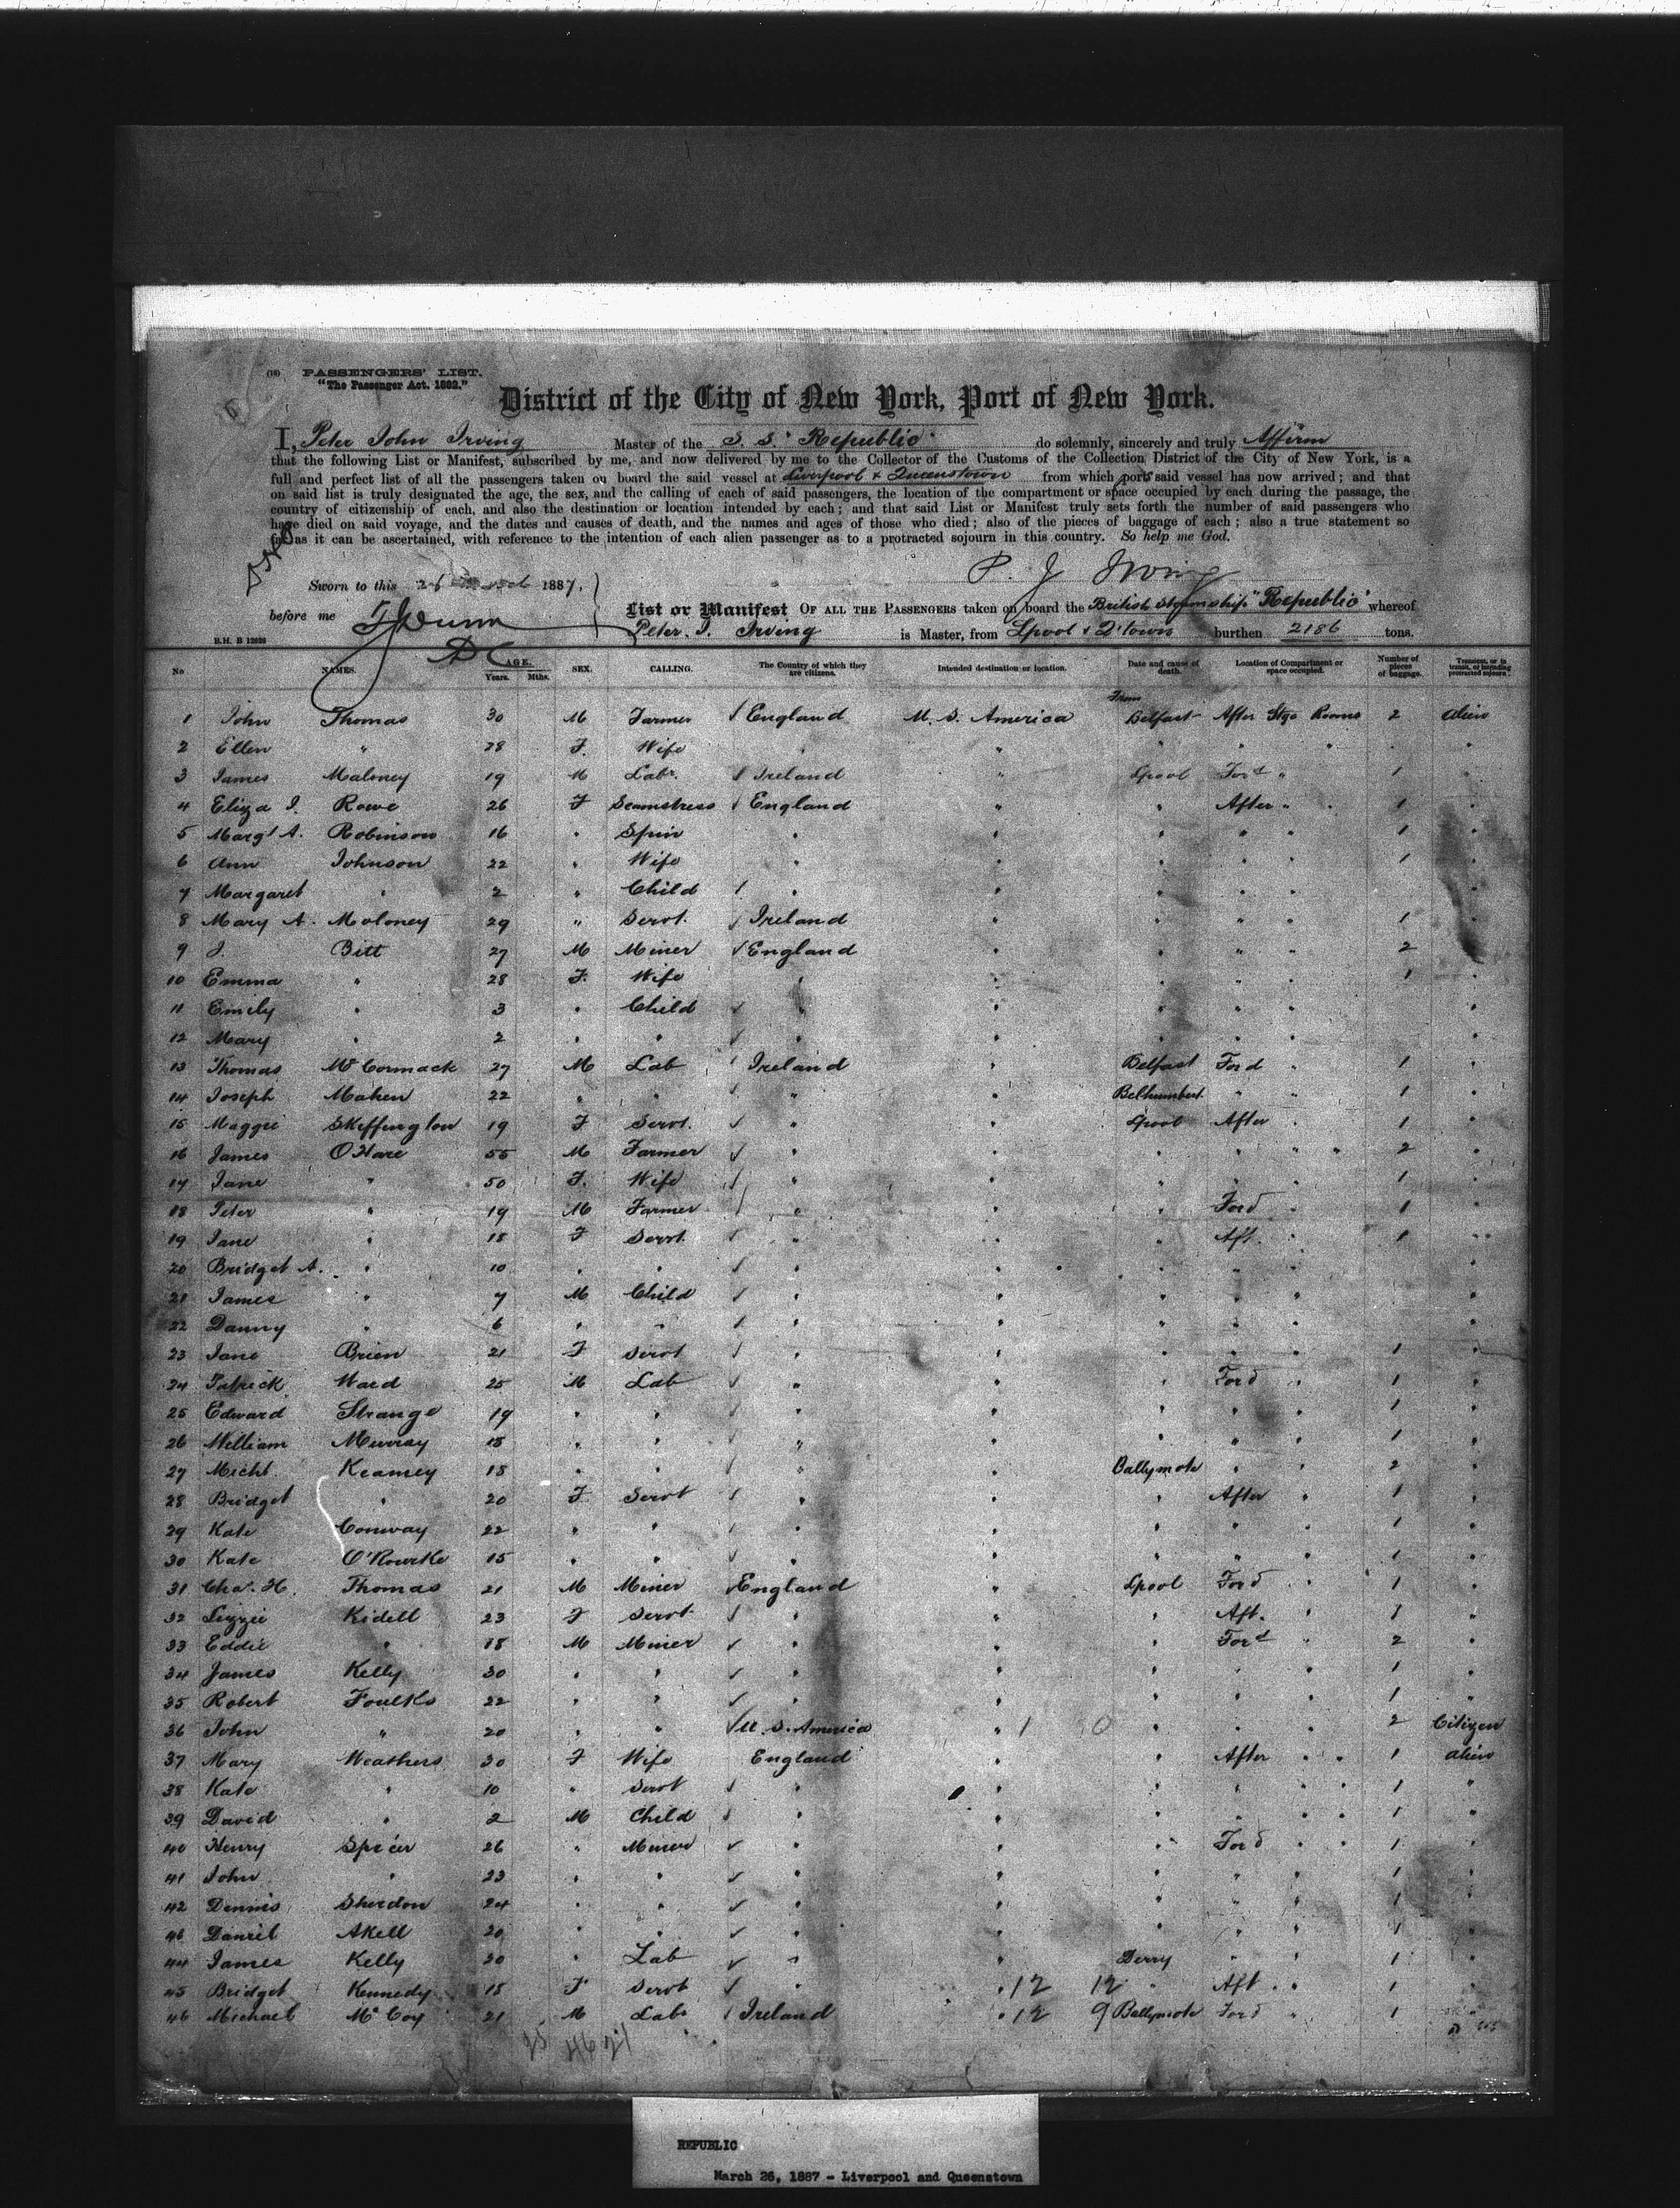 (18) PASSENGERS' LIST.
"The Passenger Act. 1882."
District of the City of New York, Port of New York.
I, Peter John Irving Master of the S. S. "Republic" do solemnly, sincerely and truly Affirm
that the following List or Manifest, subscribed by me, and now delivered by me to the Collector of the Customs of the Collection District of the City of New York, is a
full and perfect list of all the passengers taken on board the said vessel at Liverpool & Queenstown from which port said vessel has now arrived; and that
on said list is truly designated the age, the sex, and the calling of each of said passengers, the location of the compartment or space occupied by each during the passage, the
country of citizenship of each, and also the destination or location intended by each; and that said List or Manifest truly sets forth the number of said passengers who
have died on said voyage, and the dates and causes of death, and the names and ages of those who died; also of the pieces of baggage of each; also a true statement so
far as it can be ascertained, with reference to the intention of each alien passenger as to a protracted sojourn in this country. So help me God.
P. J Irving
Sworn to this 26 1887,
before me
List or Manifest OF ALL THE PASSENGERS taken on board the British Steamship "Republic" whereof
Peter. J. Irving is Master, from Lpool & Q'town burthen 2186 tons.
B.H. B 12626
No NAMES. AGE. Years. Mths. SEX. CALLING. The Country of which they are citizens. Intended destination or location. Date and cause of death. Location of Compartment or space occupied. Number of pieces of baggage. Transient, or in transit, or intending protracted sojourn.
From
1 John Thomas 30 M Farmer England U. S. America Belfast After Stge Rooms 2 Alien
2 Ellen " 28 F. Wife " " " " " "
3 James Maloney 19 M Labr. Ireland " Lpool Ford " 1 "
4 Eliza J. Rowe 26 F Seamstress England " " After " " 1 "
5 Margt A. Robinson 16 " Spin " " " " " 1 "
6 Ann Johnson 22 " Wife " " " " " 1 "
7 Margaret " 2 " Child " " " " " "
8 Mary A. Moloney 29 " Servt. Ireland " " " " 1 "
9 J. Bitt 27 M Miner England " " " " 2 "
10 Emma " 28 F. Wife " " " " " 1 "
11 Emily " 3 " Child " " " " " "
12 Mary " 2 " " " " " " " "
13 Thomas McCormack 27 M Lab Ireland " Belfast Ford " 1 "
14 Joseph Mahen 22 " " " " " " 1 "
15 Maggie Skeffington 19 F Servt. " " Lpool After " 1 "
16 James O'Hare 55 M Farmer " " " " " " 2 "
17 Jane " 50 F. Wife " " " " " 1 "
18 Peter " 19 M Farmer " " " Ford " 1 "
19 Jane " 18 F Servt. " " " Aft. " 1 "
20 Bridget A. " 10 " " " " " " " "
21 James " 7 M Child " " " " " "
22 Danny " 6 " " " " " " " "
23 Jane Brien 21 F Servt " " " " " 1 "
24 Patrick Ward 25 M Lab " " " Ford " 1 "
25 Edward Strange 19 " " " " " " " 1 "
26 William Murray 18 " " " " " " " 1 "
27 Michl. Kearney 18 " " " " Ballymote " " 2 "
28 Bridget " 20 F Servt " " " After " 1 "
29 Kate Conway 22 " " " " " " " 1 "
30 Kate O'Rourke 15 " " " " " " " 1 "
31 Chas. H. Thomas 21 M Miner England " Lpool Ford " 1 "
32 Lizzie Kidell 23 F Servt " " " Aft. " 1 "
33 Eddie " 18 M Miner " " " Ford " 2 "
34 James Kelly 30 " " " " " " " 1 "
35 Robert Foulks 22 " " " " " " " 1 "
36 John " 20 " " U. S. America " 1 0 " " " 2 Citizen
37 Mary Weathers 30 F Wife England " " After " " 1 Alien
38 Kate " 10 " Servt " " " " " 1 "
39 David " 2 M Child " " " " " " 1 "
40 Henry Spicer 26 " Miner " " " Ford " " 1 "
41 John " 23 " " " " " " " 1 "
42 Dennis Sherdon 24 " " " " " " " 1 "
43 Daniel Akell 20 " " " " " " " 1 "
44 James Kelly 20 " Lab " " Derry " " 1 "
45 Bridget Kennedy 18 F Servt " " 12 12 " Aft. " 1 "
46 Michael McCoy 21 M Labr Ireland " 12 9 Ballymote Ford " 1 "
25 46 21
REPUBLIC
March 26, 1887 - Liverpool and Queenstown